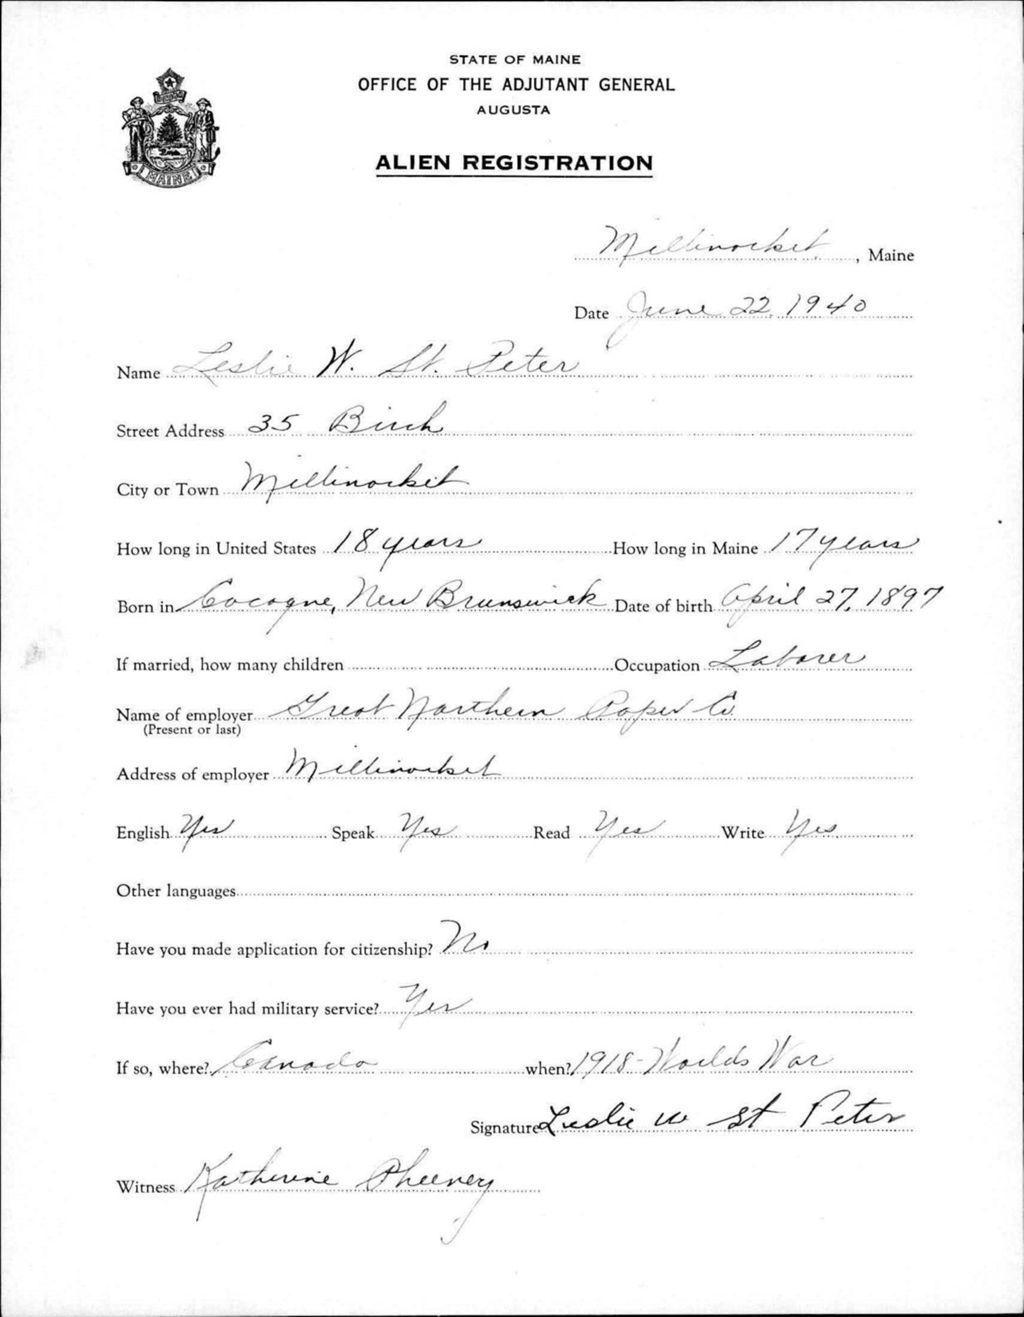 STATE OF MAINE
OFFICE OF THE ADJUTANT GENERAL
AUGUSTA
ALIEN REGISTRATION
MAINE
Millinocket, Maine
Date June 22, 1940
Name Leslie W. St. Peter
Street Address 35 Birch
City or Town Millinocket
How long in United States 18 years How long in Maine 17 years
Born in Cocogne, New Brunswick Date of birth April 27, 1897
If married, how many children Occupation Laborer
Name of employer Great Northern Paper Co.
(Present or last)
Address of employer Millinocket
English Yes Speak Yes Read Yes Write Yes
Other languages
Have you made application for citizenship? No
Have you ever had military service? Yes
If so, where? Canada when? 1918-Worlds War
Signature Leslie W St Peter
Witness Katherine Pheeney